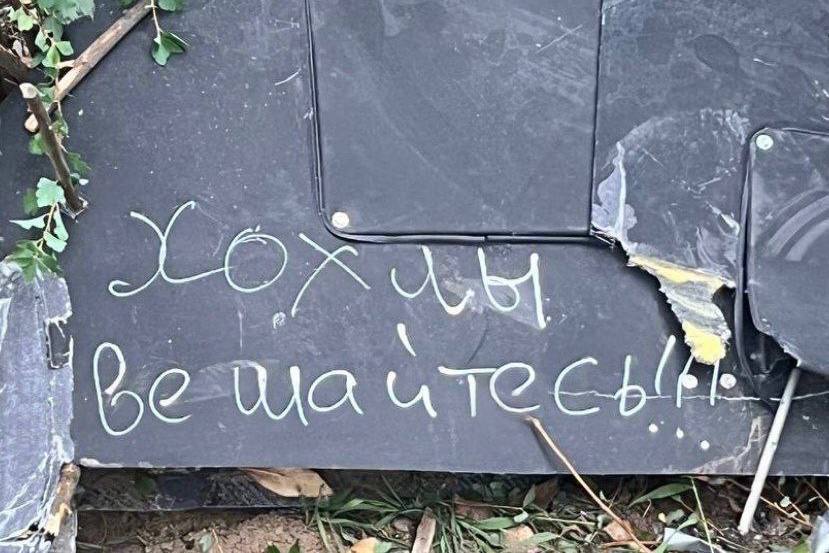 Хохлы
вешайтесь!!!